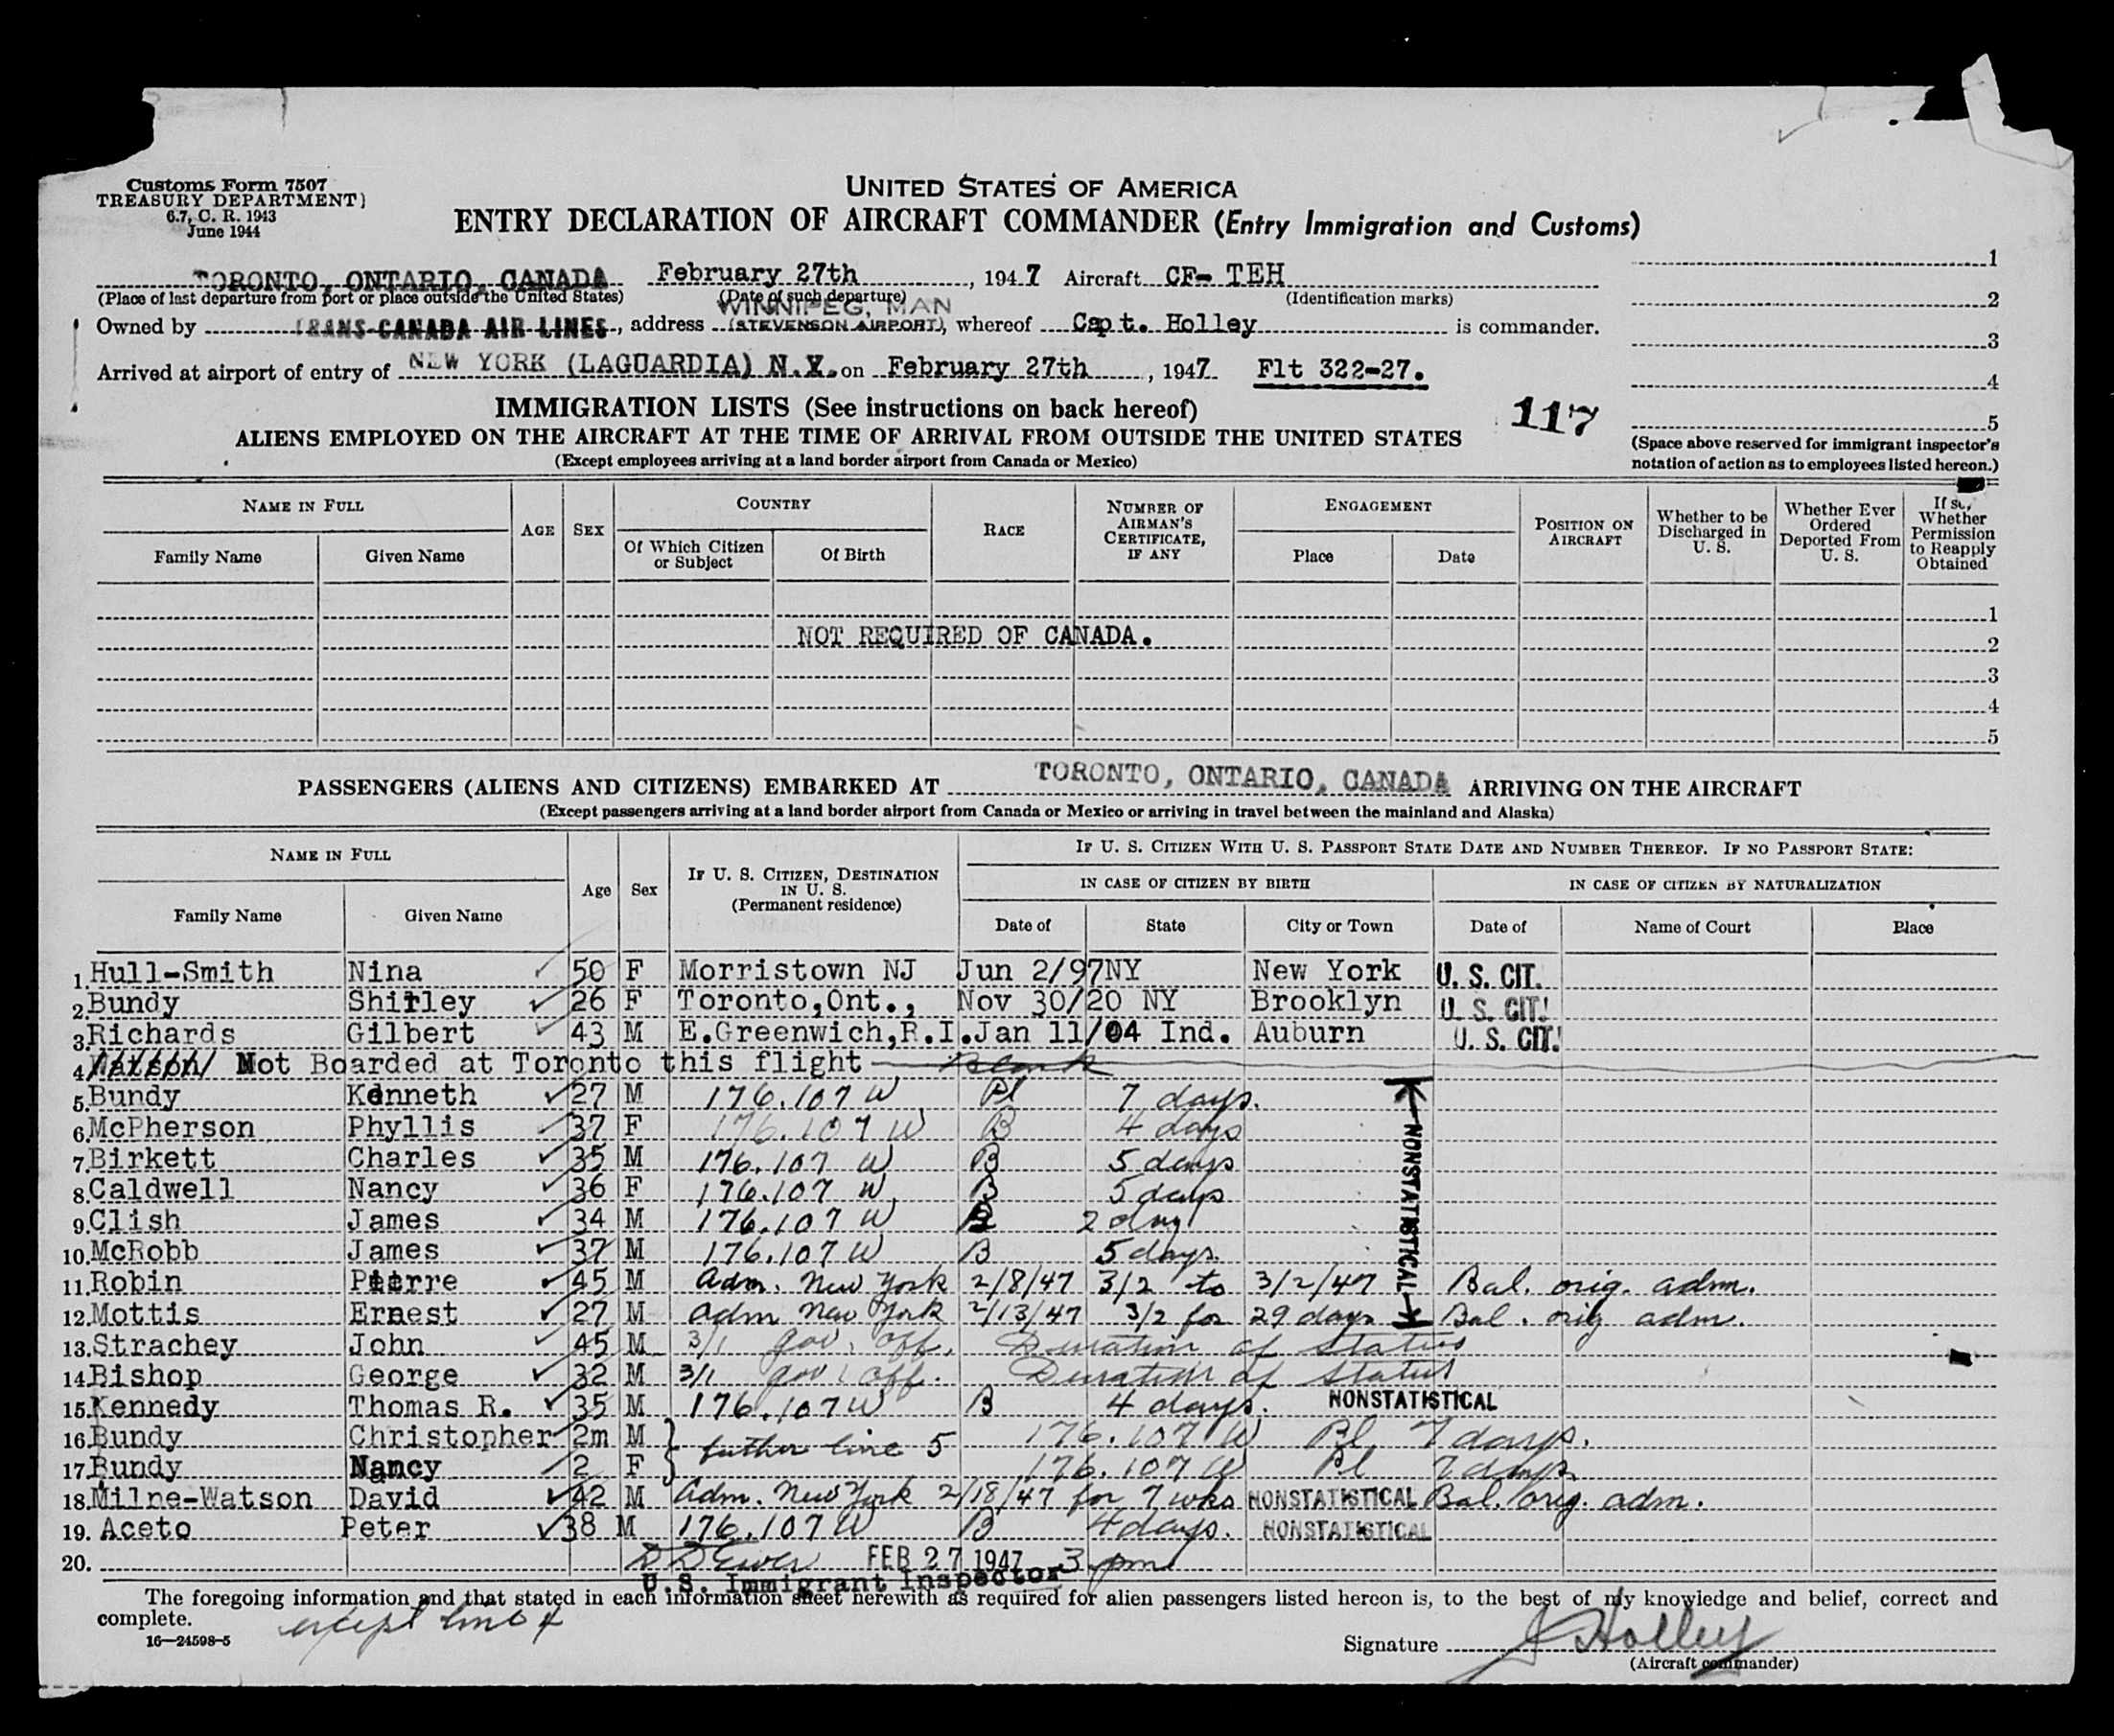 Customs Form 7507
TREASURY DEPARTMENT)
6.7, C. R. 1943
June 1944
UNITED STATES OF AMERICA
ENTRY DECLARATION OF AIRCRAFT COMMANDER (Entry Immigration and Customs)
TORONTO, ONTARIO, CANADA February 27th, 1947 Aircraft CF- TEH 1
(Place of last departure from port or place outside the United States) (Date of such departure) (Identification marks) 2
WINNIPEG, MAN
Owned by TRANS-CANADA AIR LINES, address (STEVENSON AIRPORT), whereof Capt. Holley is commander. 3
Arrived at airport of entry of NEW YORK (LAGUARDIA) N.Y. on February 27th, 1947 Flt 322-27. 4
IMMIGRATION LISTS (See instructions on back hereof) 117 5
ALIENS EMPLOYED ON THE AIRCRAFT AT THE TIME OF ARRIVAL FROM OUTSIDE THE UNITED STATES
(Except employees arriving at a land border airport from Canada or Mexico)
(Space above reserved for immigrant inspector's
notation of action as to employees listed hereon.)
NAME IN FULL AGE SEX COUNTRY RACE NUMBER OF AIRMAN'S CERTIFICATE, IF ANY ENGAGEMENT POSITION ON AIRCRAFT Whether to be Discharged in U. S. Whether Ever Ordered Deported From U. S. If so, Whether Permission to Reapply Obtained
Family Name Given Name Of Which Citizen or Subject Of Birth Place Date
1
NOT REQUIRED OF CANADA. 2
3
4
5
PASSENGERS (ALIENS AND CITIZENS) EMBARKED AT TORONTO, ONTARIO, CANADA ARRIVING ON THE AIRCRAFT
(Except passengers arriving at a land border airport from Canada or Mexico or arriving in travel between the mainland and Alaska)
NAME IN FULL Age Sex IF U. S. CITIZEN, DESTINATION IN U. S. (Permanent residence) IF U. S. CITIZEN WITH U. S. PASSPORT STATE DATE AND NUMBER THEREOF. IF NO PASSPORT STATE:
IN CASE OF CITIZEN BY BIRTH IN CASE OF CITIZEN BY NATURALIZATION
Family Name Given Name Date of State City or Town Date of Name of Court Place
1. Hull-Smith Nina 50 F Morristown NJ Jun 2/97 NY New York U. S. CIT.
2. Bundy Shirley 26 F Toronto,Ont., Nov 30/20 NY Brooklyn U. S. CIT.
3. Richards Gilbert 43 M E.Greenwich,R.I. Jan 11/04 Ind. Auburn U. S. CIT.
4. Watson Not Boarded at Toronto this flight Blank
5. Bundy Kenneth 27 M 176.107 W Bl 7 days.
6. McPherson Phyllis 37 F 176.107 W B 4 days
7. Birkett Charles 35 M 176.107 W B 5 days
8. Caldwell Nancy 36 F 176.107 W B 5 days
9. Clish James 34 M 176.107 W B 2 day
10. McRobb James 37 M 176.107 W B 5 days.
NONSTATISTICAL
11. Robin Pierre 45 M Adm. New York 2/8/47 3/2 to 3/2/47 Bal. orig. adm.
12. Mottis Ernest 27 M adm New York 2/13/47 3/2 for 29 days Bal. orig adm.
13. Strachey John 45 M 3/1 gov. off. Duration of status
14. Bishop George 32 M 3/1 gov. off. Duration of status
15. Kennedy Thomas R. 35 M 176.107 W B 4 days. NONSTATISTICAL
16. Bundy Christopher 2m M } father line 5 176.107 W Bl 7 days.
17. Bundy Nancy 2 F 176.107 W Bl 7 days
18. Milne-Watson David 42 M Adm. New York 2/18/47 for 7 wks NONSTATISTICAL Bal. orig. adm.
19. Aceto Peter 38 M 176.107 W B 4 days. NONSTATISTICAL
20. FEB 27 1947 3 pm
U.S. Immigrant Inspector
The foregoing information and that stated in each information sheet herewith as required for alien passengers listed hereon is, to the best of my knowledge and belief, correct and
complete. except line 4
16—24598-5
Signature J Holley
(Aircraft commander)